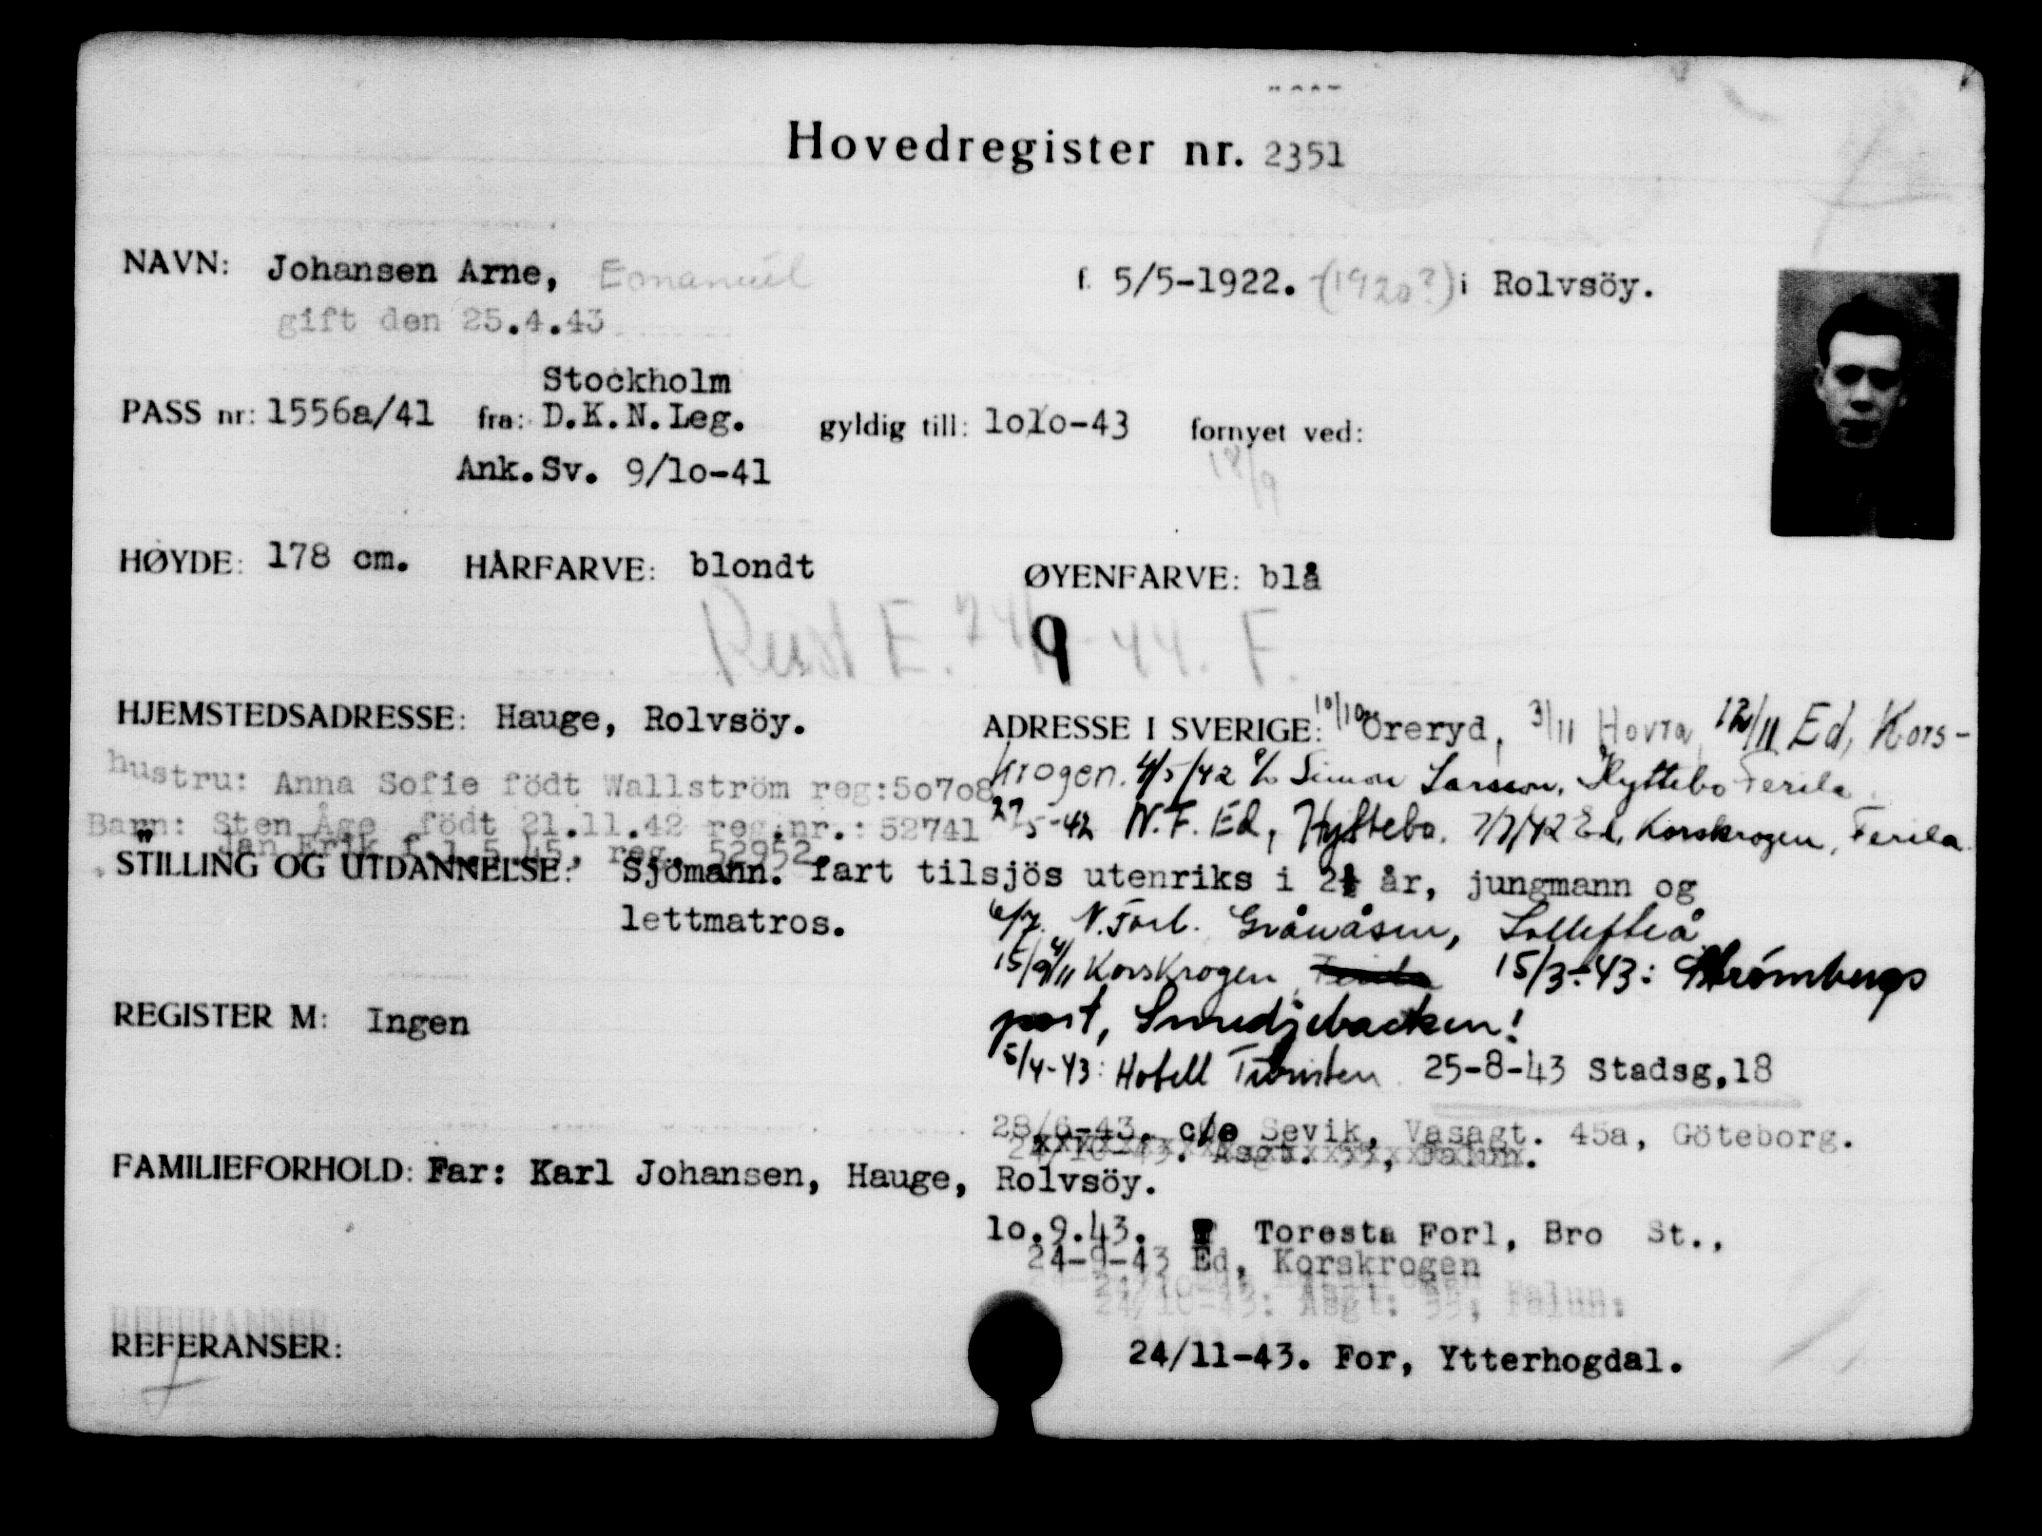 Hovedregister nr. 2351
NAVN: Johansen Arne, Emanuel f. 5/5-1922. (1920?) i Rolvsöy.
gift den 25.4.43
Stockholm
PASS nr: 1556a/41 fra: D.K.N.Leg. gyldig till: lolo-43 fornyet ved:
Ank.Sv. 9/lo-41
18/9
HØYDE: 178 cm. HÅRFARVE: blondt ØYENFARVE: blå
9
HJEMSTEDSADRESSE: Hauge, Rolvsöy. ADRESSE I SVERIGE: 10/10 Öreryd, 3/11 Hovra, 12/11 Ed, Kors-
krogen. 4/5/42 c/o Simon Larsson, Hyttebo Ferila.
hustru: Anna Sofie födt Wallström reg:50708
27/5-42 N.F. Ed, Hyttebo. 7/7/42 Ed, Korskrogen, Ferila.
Barn: Sten Åge födt 21.11.42 reg.nr.: 52741
" Jan Erik f.1.5.45, reg. 52952.
STILLING OG UTDANNELSE: Sjömann. fart tilsjös utenriks i 2½ år, jungmann og
lettmatros.
N.Forl. Gråwåsen, Sollefteå
Korskrogen, Ferila 15/3-43: Strömbergs
post, Smedjebacken!
REGISTER M: Ingen
5/4-43: Hotell Turisten 25-8-43 Stadsg,18
28/6-43. c/o Sevik, Vasagt. 45a, Göteborg.
24/10-43. Asgt. 55, Falun.
FAMILIEFORHOLD: Far: Karl Johansen, Hauge, Rolvsöy.
lo.9.43. Toresta Forl, Bro St.,
24-9-43 Ed, Korskrogen
24/10-43: Asgt: 55, Falun.
REFERANSER:
24/11-43. For, Ytterhogdal.